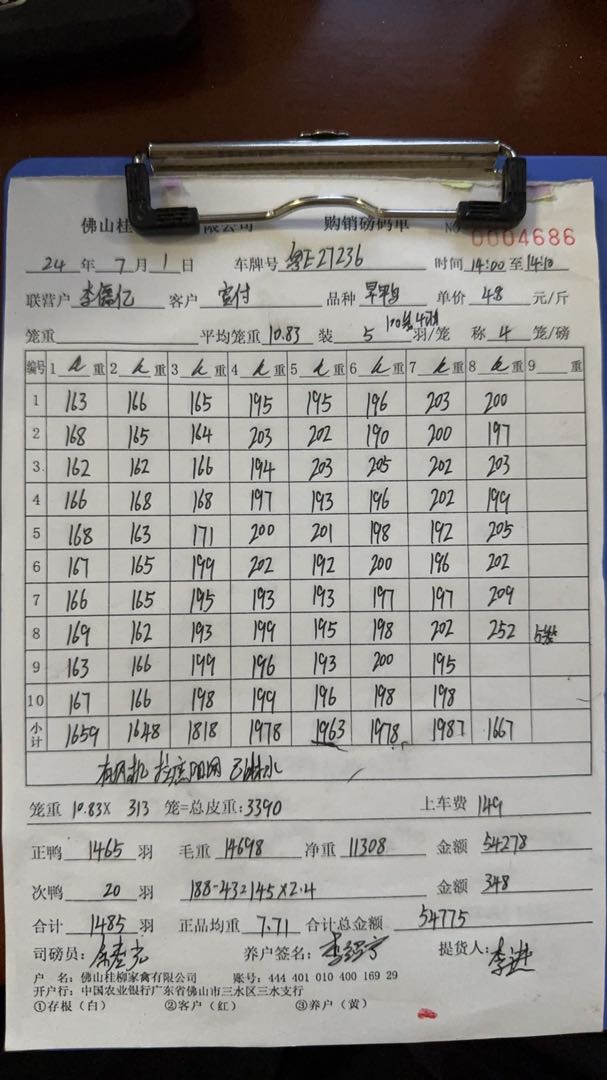 佛山桂 限公司 购销磅码单 NO 0004686
24 年 7 月 1 日 车牌号 粤E27236 时间 14:00 至 14:10
联营户 客户 品种 旱鸭 单价 4.8 元/斤
笼重 平均笼重 10.83 装 5 羽/笼 称 4 笼/磅
编号 1 重 2 重 3 重 4 重 5 重 6 重 7 重 8 重 9 重
1 163 166 165 195 195 196 203 200
2 168 165 164 203 202 190 200 197
3. 162 162 166 194 203 205 202 203
4 166 168 168 197 193 196 202 199
5 168 163 171 200 201 198 192 205
6 167 165 199 202 192 200 196 202
7 166 165 195 193 193 197 197 209
8 169 162 193 199 195 198 202 252
9 163 166 199 196 193 200 195
10 167 166 198 199 196 198 198
小计 1659 1648 1818 1978 1963 1978 1987 1667
笼重 10.83X 313 笼=总皮重: 3390 上车费 149
正鸭 1465 羽 毛重 14698 净重 11308 金额 54278
次鸭 20 羽 188-43 145X2.4 金额 348
合计 1485 羽 正品均重 7.71 合计总金额 54775
司磅员: 养户签名: 提货人:
户 名: 佛山桂柳家禽有限公司 账号: 444 401 010 400 169 29
开户行: 中国农业银行广东省佛山市三水区三水支行
①存根(白) ②客户(红) ③养户(黄)